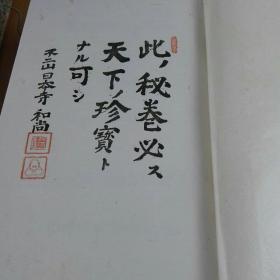 此ノ秘巻必ス
天下ノ珍寶ト
ナル可シ
不二山日本寺 和尚